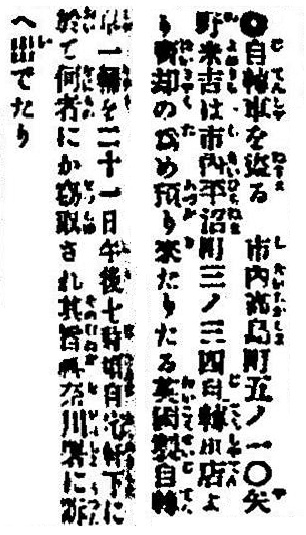 ●自轉車を盜る　市内高島町五ノ一〇矢
野米吉は市内平沼町三ノ三四自轉車店よ
り賣却の爲め預り來たりたる英國製自轉
車一輛を二十一日午後七時頃自宅軒下に
於て何者にか竊取され其旨神奈川署に訴
へ出でたり